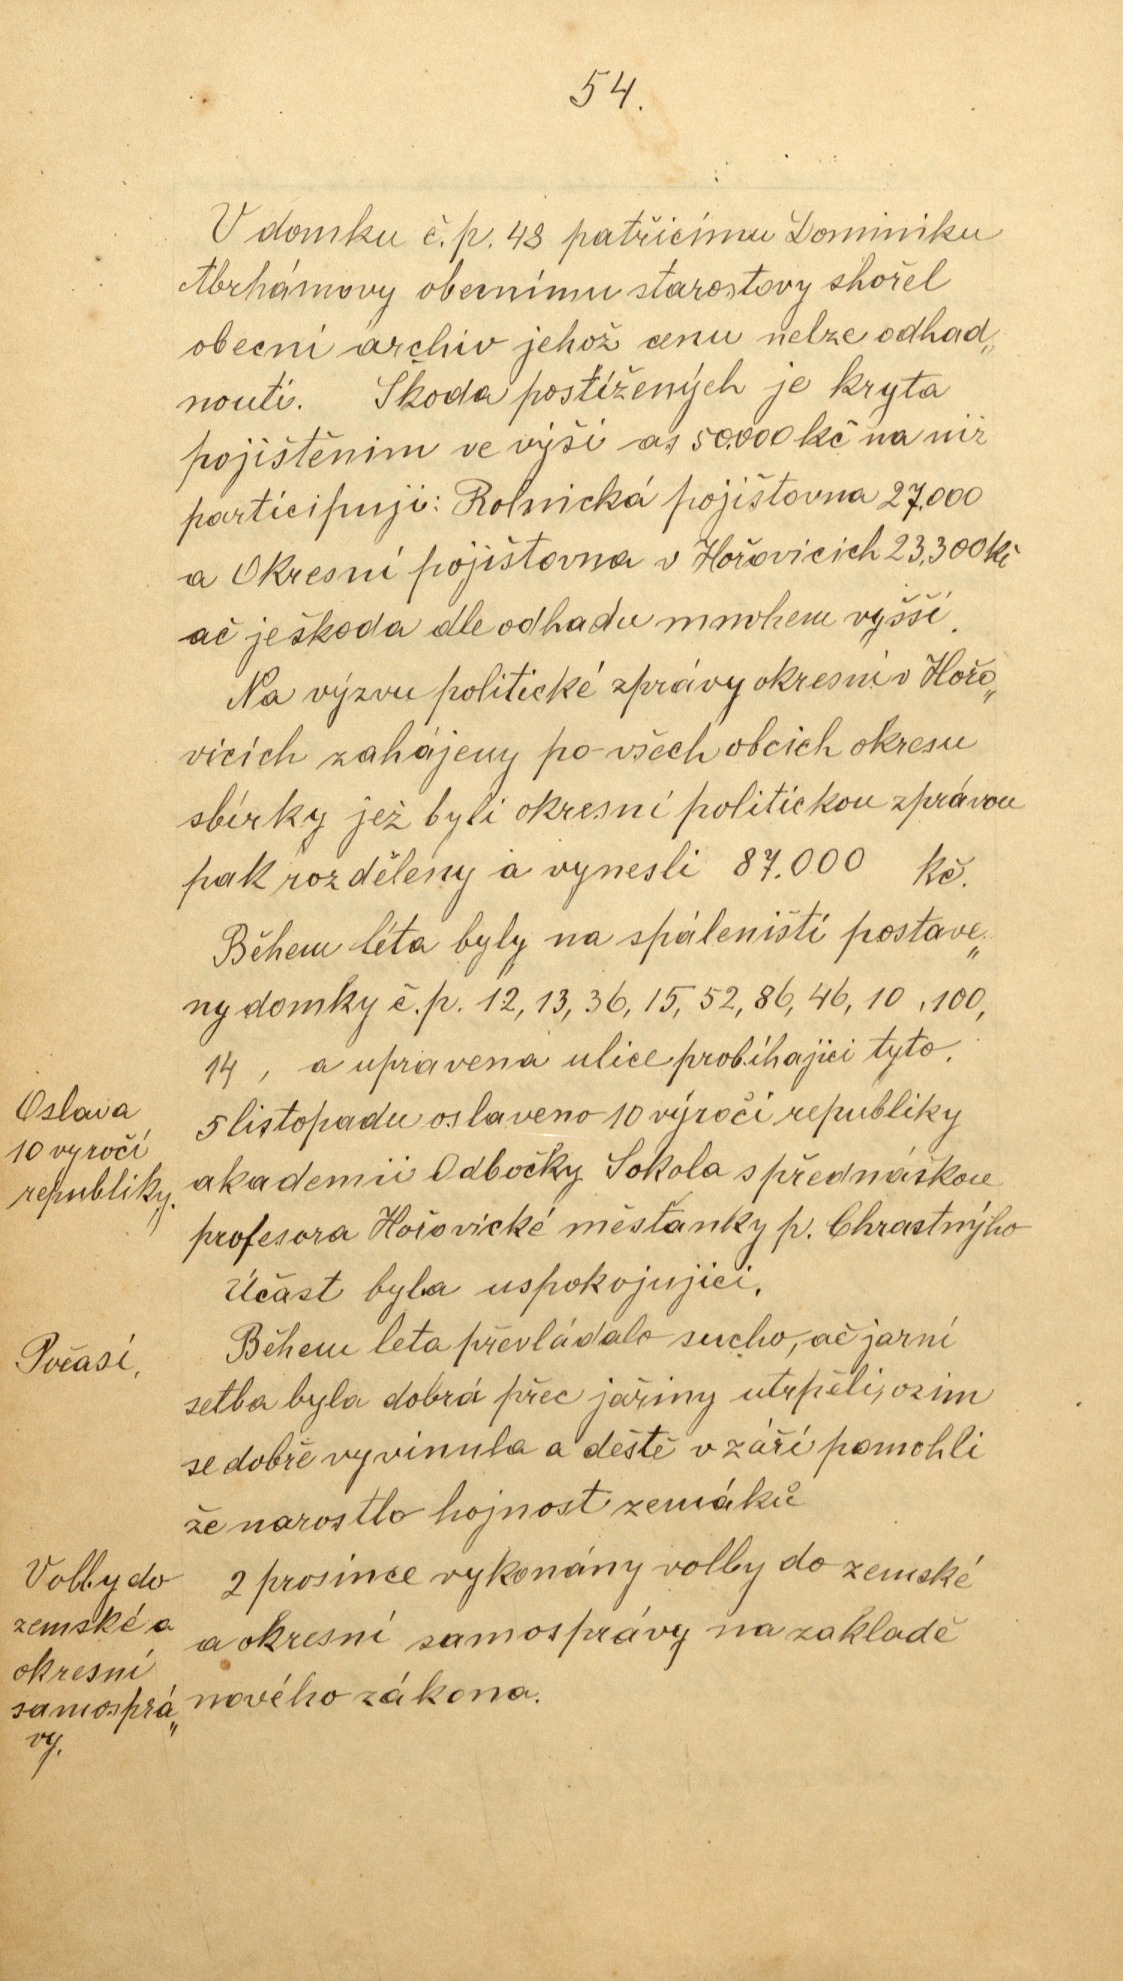 54.
V domku č.p. 48 patřicímu Dominiku
Abrhámovy obecnímu starostovy shořel
obecni archiv jehož cenu nelze odhad„
nouti. Škoda postižených je kryta
pojištěnim ve výši as 50.000 kč na niž
participuji: Rolnická pojištovna 27.000
a Okresní pojištovna v Hořovicich 23.300 kč
ač je škoda dle odhadu mnohem vyšší.
Na výzvu politické zprávy okresní v Hořo„
vicích zahájeny po všech obcich okresu
sbírky jež byli okresní politickou zprávou
pak rozděleny a vynesli 87.000 kč.
Během léta byly na spáleništi postave„
ny domky č.p. 12, 13, 36, 15, 52, 86, 46, 10, 100,
14, a upravena ulice probíhajici tyto.
Oslava
10 vyročí
republiky.
5 listopadu oslaveno 10 výročí republiky
akademii Odbočky Sokola s přednáškou
profesora Hořovické měšťanky p. Chrastnýho
Účast byla uspokojujici.
Počasí.
Během leta převládalo sucho, ač jarní
setba byla dobrá přec jařiny utrpěli, ozim
se dobře vyvinula a deště v září pomohli
že narostlo hojnost zemáků
Volby do
zemské a
okresní
samosprá„
vy.
2 prosince vykonány volby do zemské
a okresní samosprávy na zakladě
nového zákona.